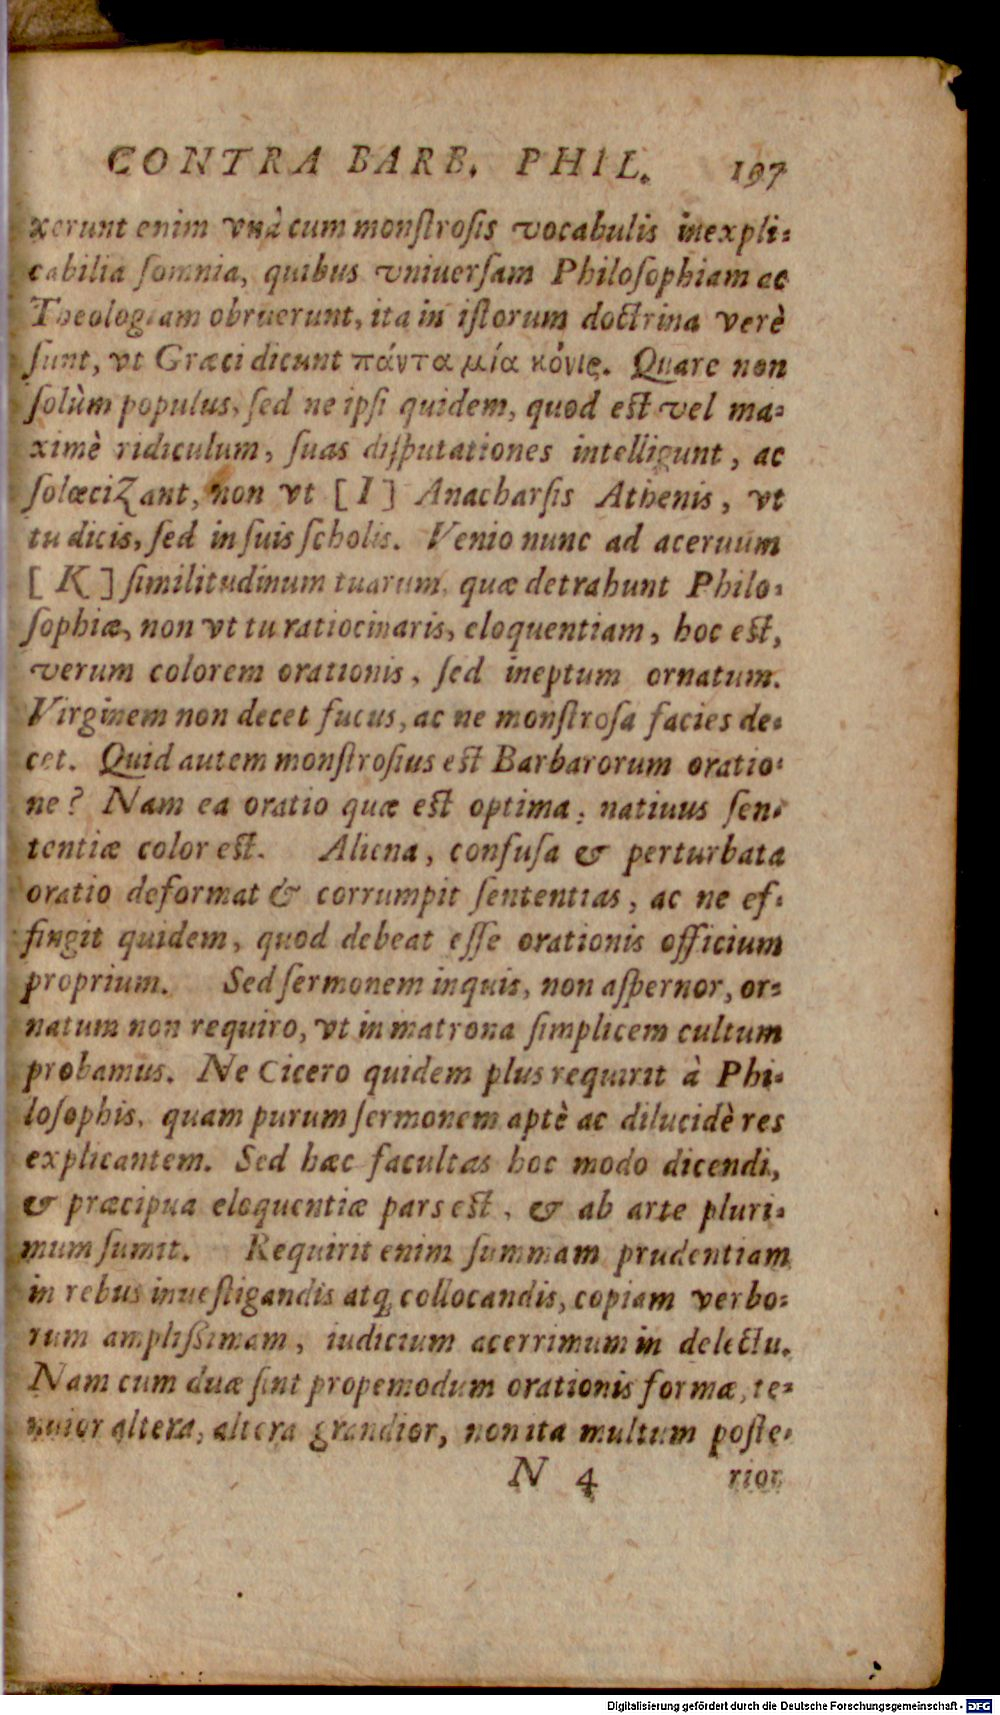 CONTRA BARB. PHIL. 197
xerunt enim vnà cum monſtroſis vocabulis inexpli-
cabilia ſomnia, quibus vniuerſam Philoſophiam ac
Theologiam obruerunt, ita in iſtorum doctrina verè
ſunt, vt Græci dicunt πάντα μία κόνις. Quare non
ſolùm populus, ſed ne ipſi quidem, quod eſt vel ma-
ximè ridiculum, ſuas diſputationes intelligunt, ac
ſolœcizant, non vt [I] Anacharſis Athenis, vt
tu dicis, ſed in ſuis ſcholis. Venio nunc ad aceruum
[K] ſimilitudinum tuarum, quæ detrahunt Philo-
ſophiæ, non vt tu ratiocinaris, eloquentiam, hoc eſt,
verum colorem orationis, ſed ineptum ornatum.
Virginem non decet fucus, ac ne monſtroſa facies de-
cet. Quid autem monſtroſius eſt Barbarorum oratio-
ne? Nam ea oratio quæ eſt optima, natiuus ſen-
tentiæ color eſt. Aliena, confuſa & perturbata
oratio deformat & corrumpit ſententias, ac ne ef-
fingit quidem, quod debeat eſſe orationis officium
proprium. Sed ſermonem inquis, non aſpernor, or-
natum non requiro, vt in matrona ſimplicem cultum
probamus. Ne Cicero quidem plus requirit à Phi-
loſophis, quam purum ſermonem aptè ac dilucidè res
explicantem. Sed hæc facultas hoc modo dicendi,
& præcipua eloquentiæ pars eſt, & ab arte pluri-
mum ſumit. Requirit enim ſummam prudentiam
in rebus inueſtigandis atq; collocandis, copiam verbo-
rum ampliſſimam, iudicium acerrimum in delectu.
Nam cum duæ ſint propemodum orationis formæ, te-
nuior altera, altera grandior, non ita multum poſte-
N 4 rior
Digitalisierung gefördert durch die Deutsche Forschungsgemeinschaft - DFG